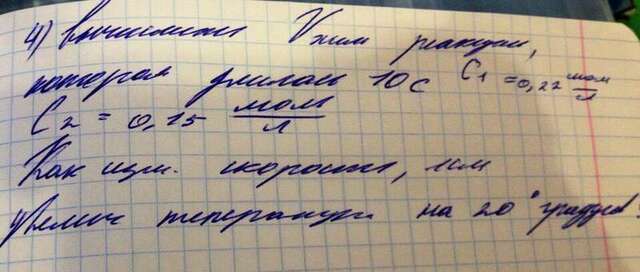 4) Вычислить V хим реакции,
которая длилась 10с C₁ =0,22 моль/л
C₂ = 0,15 моль/л
Как изм. скорость, при
увелич температуры на 20° градусов